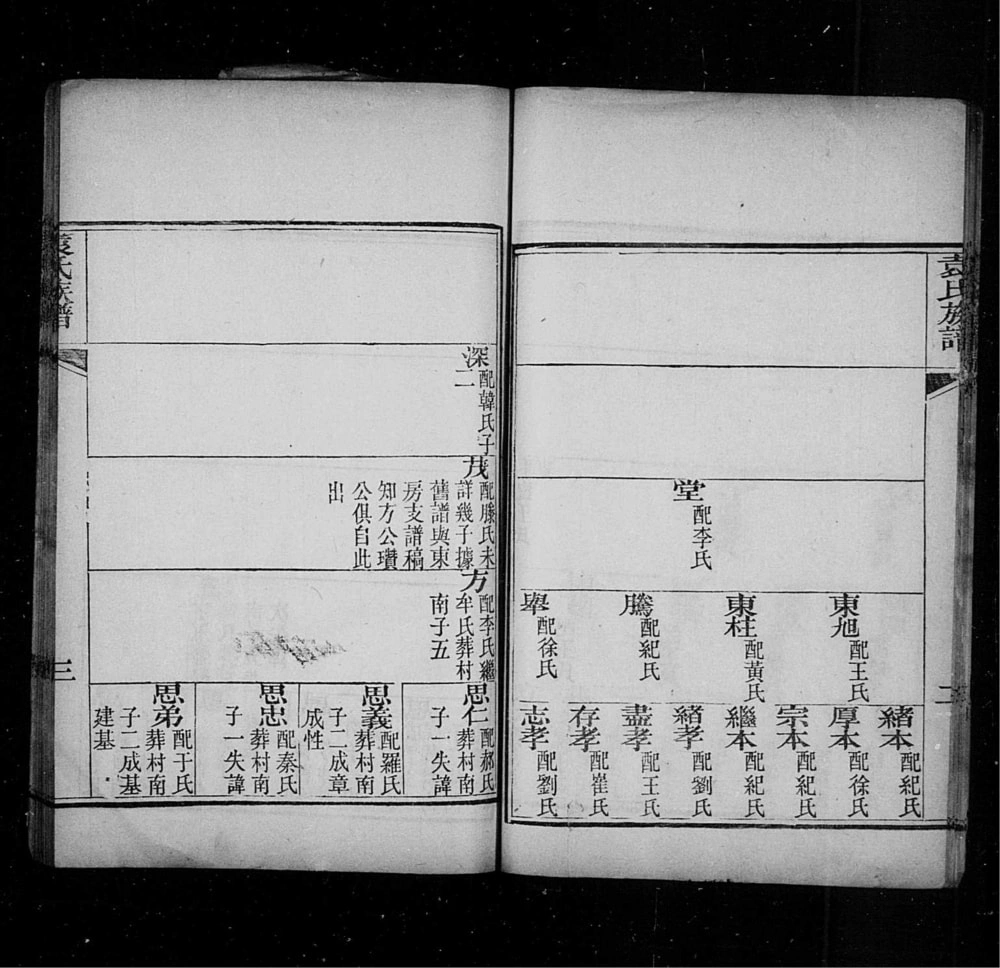 袁氏族譜
二
堂
配李氏
東旭
配王氏
東柱
配黃氏
騰
配紀氏
舉
配徐氏
緒本
配紀氏
厚本
配徐氏
宗本
配紀氏
繼本
配紀氏
緒孝
配劉氏
盡孝
配王氏
存孝
配崔氏
志孝
配劉氏
深
配韓氏子
二
茂
配滕氏未
詳幾子據
舊譜與東
房支譜稿
知方公瓚
公俱自此
出
方
配李氏繼
牟氏葬村
南子五
思仁
配郝氏
葬村南
子一失諱
思義
配羅氏
葬村南
子二成章
成性
思忠
配秦氏
葬村南
子一失諱
思弟
配于氏
葬村南
子二成基
建基
袁氏族譜
三